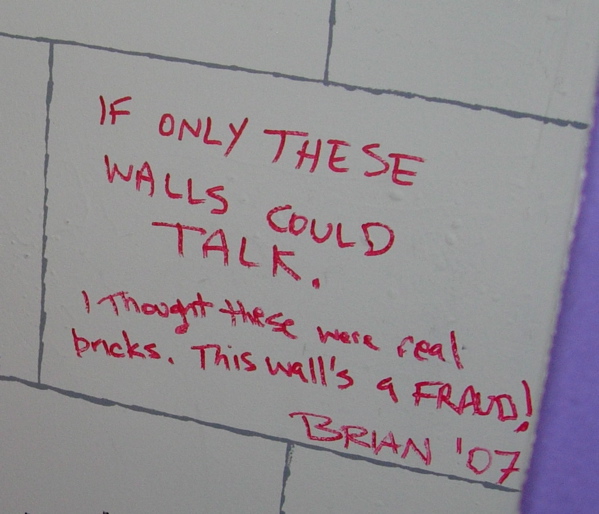 IF ONLY THESE
WALLS COULD
TALK.
I Thought these were real
bricks. This wall's a FRAUD!
BRIAN '07